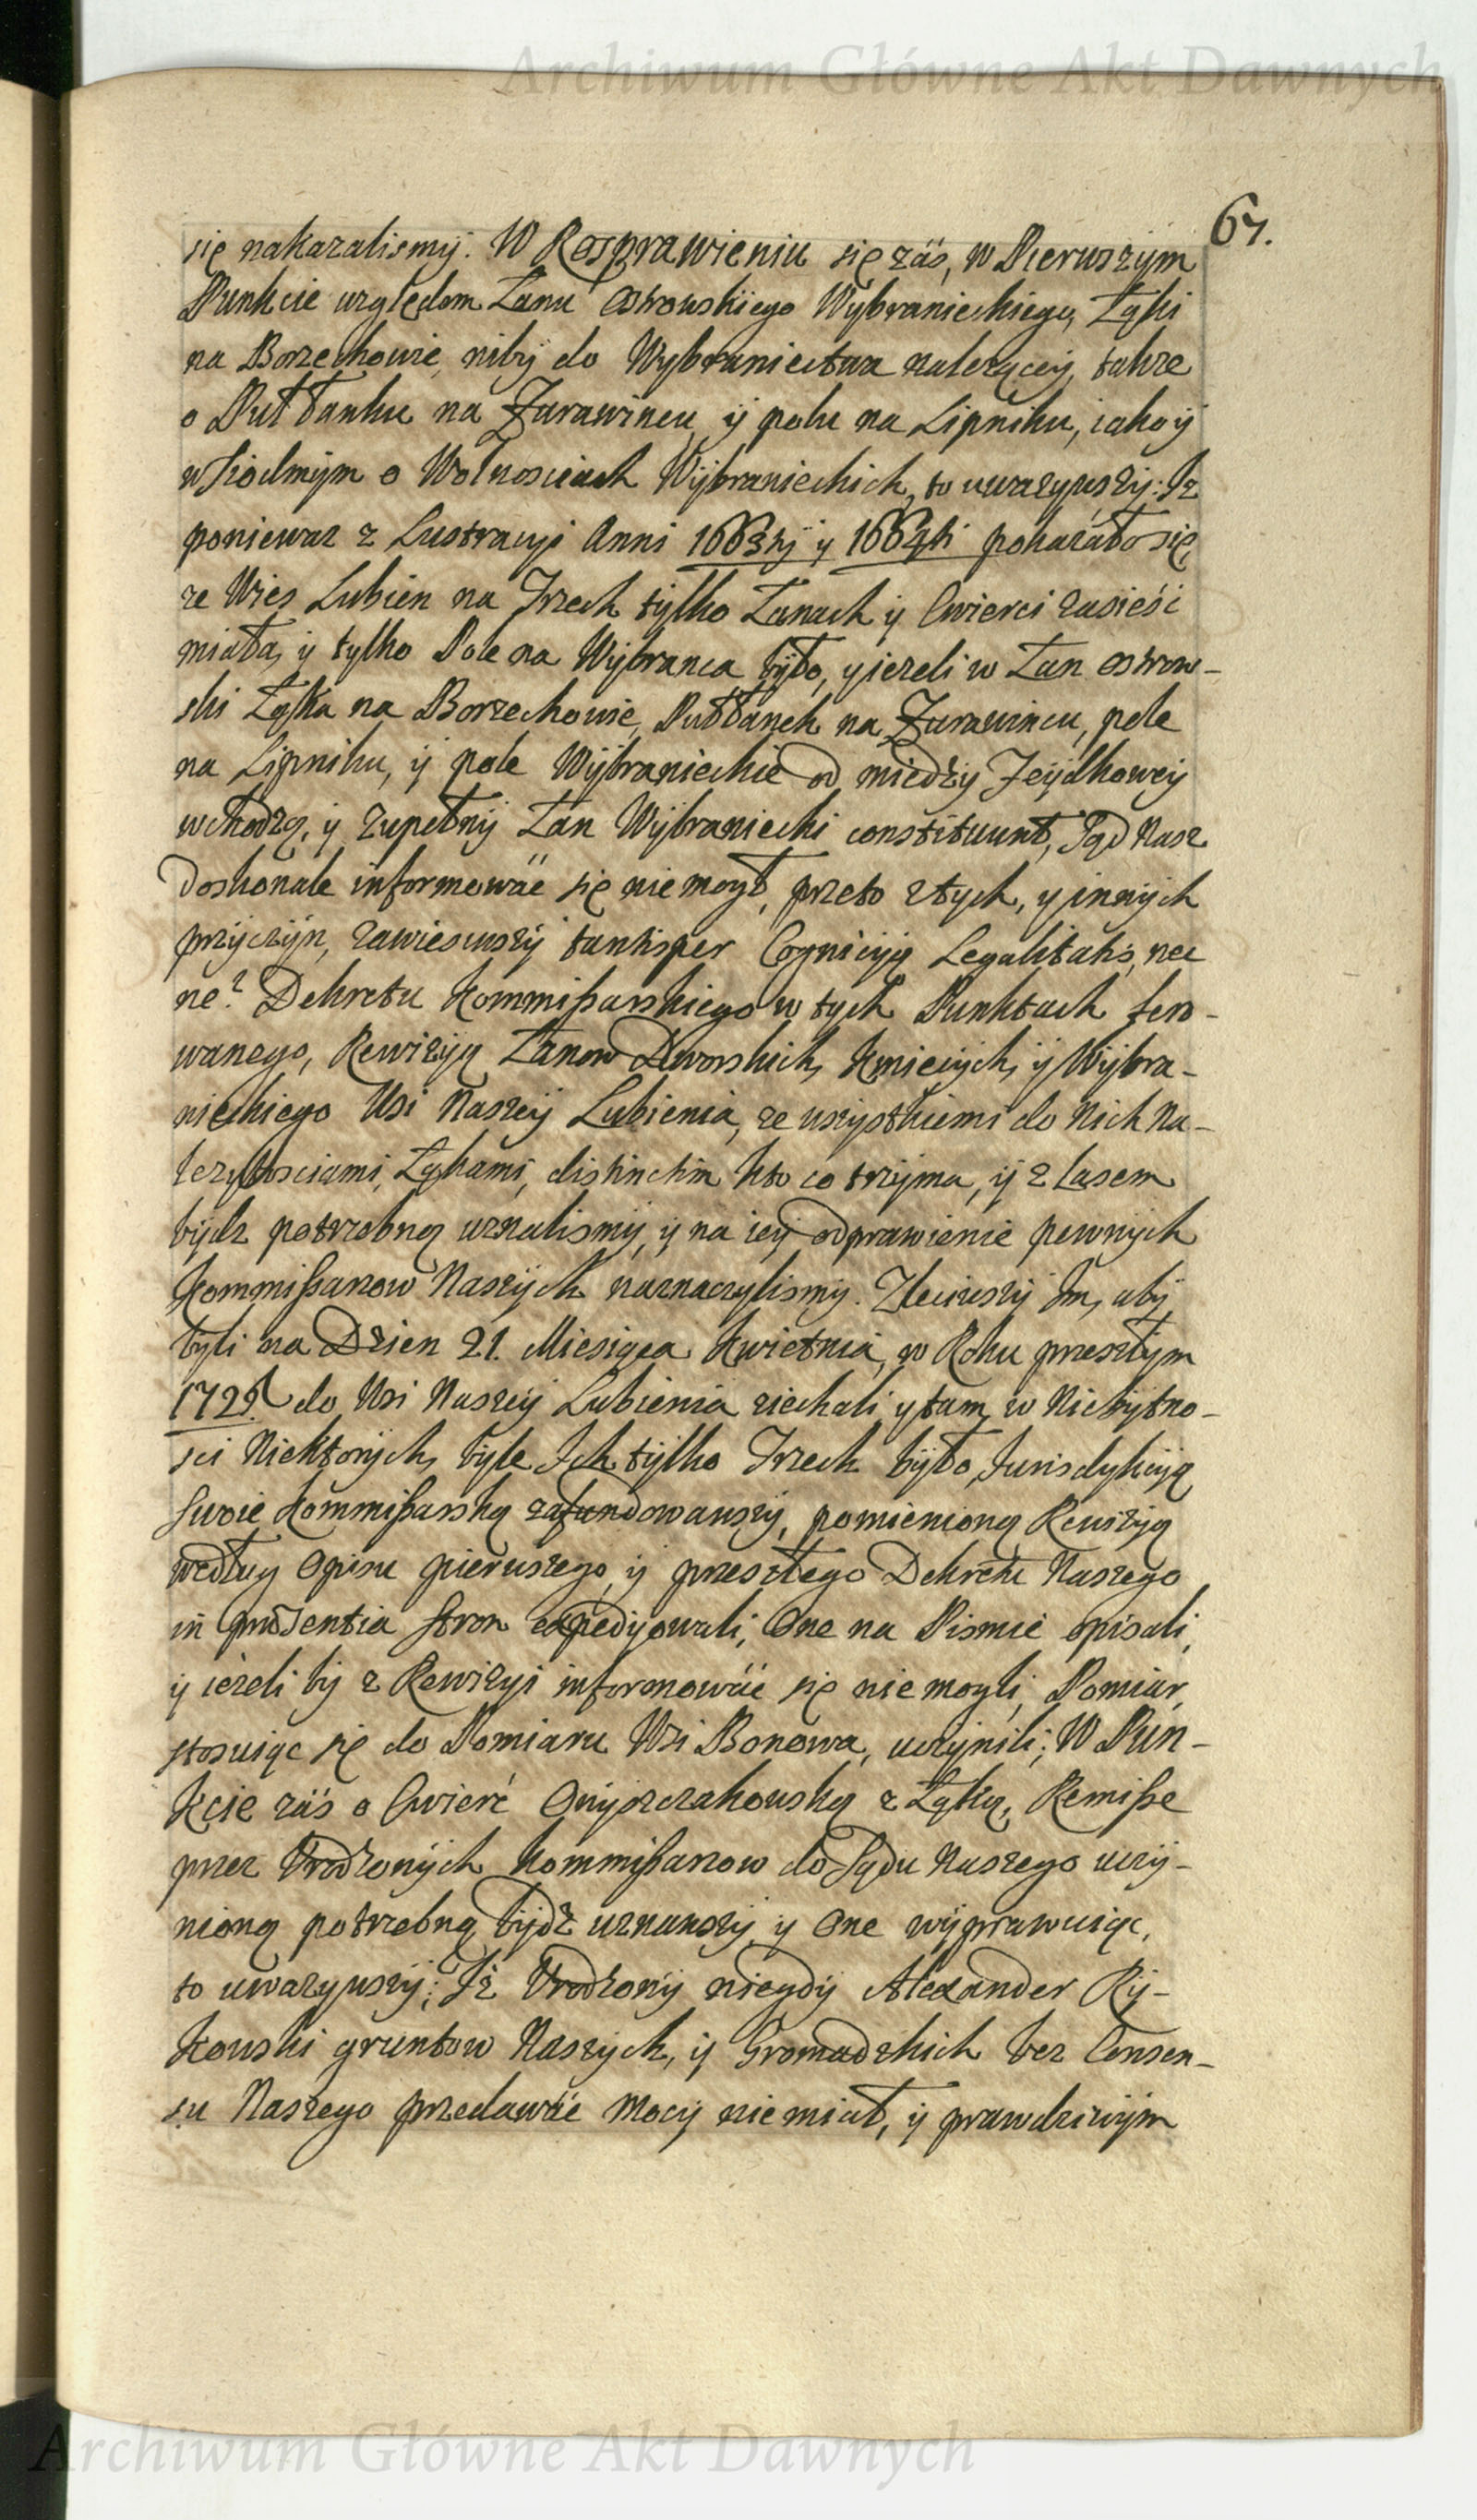 Archiwum Główne Akt Dawnych
67.
się nakazalismÿ. W Rosprawieniu się zaś, w Pierwszym
Punkcie względem Łanu Ostrowskiego Wÿbranieckiego, Łąki
na Borzechowie, nibÿ do Wybraniectwa należąceÿ, także
o Puł Łanku na Żurawincu, ÿ polu na Lipniku, iako ÿ
w Siodmÿm o Wolnosciach Wÿbranieckich, to uwazywszÿ: Iz
poniewaz z Lustracyi Anni 1663tÿ y 1664ti pokazało się
ze Wies Lubien na Trzech tÿlko Łanach ÿ Cwierci zasieść
miała, ÿ tylko Pole na Wÿbranca bÿło, y iezeli w Łan Ostrow-
ski Łąka na Borzechowie, Pułłanek na Żurawincu, pole
na Lipniku, ÿ pole Wÿbranieckie od miedzÿ Jeÿdkoweÿ
wchodzą, ÿ zupełnÿ Łan Wÿbraniecki constituunt, Sąd Nasz
doskonale informować się nie mogł, przeto z tych, y innÿch
przÿczÿn, zawieswszÿ tantisper Cognicÿą Legalitatis, nec
ne? Dekretu Kommißarskiego w tych Punktach fero-
wanego, Rewizyą Łanow Dworskich, Kmiecÿch, ÿ Wÿbra-
nieckiego Wsi Naszeÿ Lubienia, ze wszystkiemi do Nich Na-
lezytosciami, Łąkami, distinctim kto co trzÿma, ÿ z Lasem
bÿdz potrzebną uznalismÿ, ÿ na ieÿ odprawienie pewnÿch
Kommißarzow Naszÿch naznaczylismÿ. Zleciwszÿ Im, abÿ
bÿli na Dzien 21. Miesiąca Kwietnia, w Roku przeszłÿm
do Wsi Naszeÿ Lubienia ziechali, y tam, w Niebÿtno-
sci Niektorÿch, bÿle Ich tÿlko Trzech bÿło, Jurisdykcÿą
Swoie Kommißarską zafundowawszÿ, pomienioną Rewizÿą
według Opisu pierwszego, ÿ przeszłego Dekretu Naszego
in præsentia Stron expedyowali, One na Pismie opisali,
ÿ iezeli bÿ z Rewizyi informowáć się nie mogli, Pomiar,
stosuiąc się do Pomiaru Wsi Bonowa, uczÿnili; W Pun-
kcie zaś o Cwierć Onÿszczakowską z Łąką, Remißę
przez Urodzonÿch Kommißarzow do Sądu Naszego uczÿ-
nioną potrzebną bÿdz uznawszÿ, y One wÿprawuiąc,
to uwazywszÿ; Iż Urodzonÿ niegdÿ Alexander Rÿ-
kowski gruntow Naszÿch, ÿ Gromadzkich bez Consen-
su Naszego przedawáć Mocÿ nie miał, ÿ prawdziwÿm
Archiwum Główne Akt Dawnych